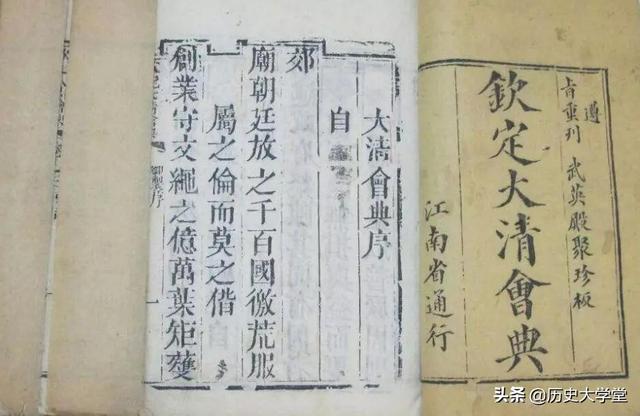 遵
旨重刊 武英殿聚珍板
欽定大清會典
江南省通行
大清會典序
自
郊
廟朝廷放之千百國徼荒服
屬之倫而莫之偕
創業守文繩之億萬葉矩矱
序
一
头条 @历史大学堂